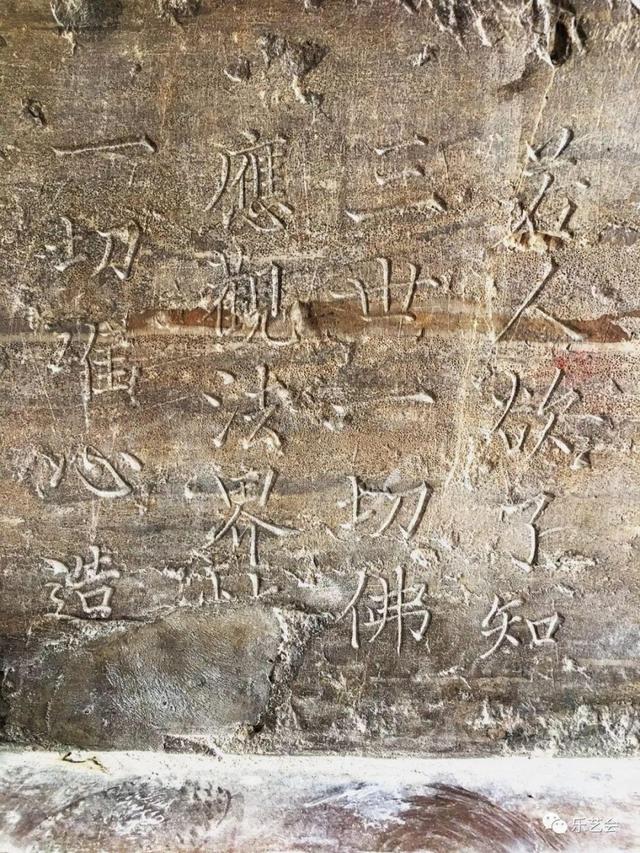 若人欲了知
三世一切佛
應觀法界性
一切惟心造
乐艺会